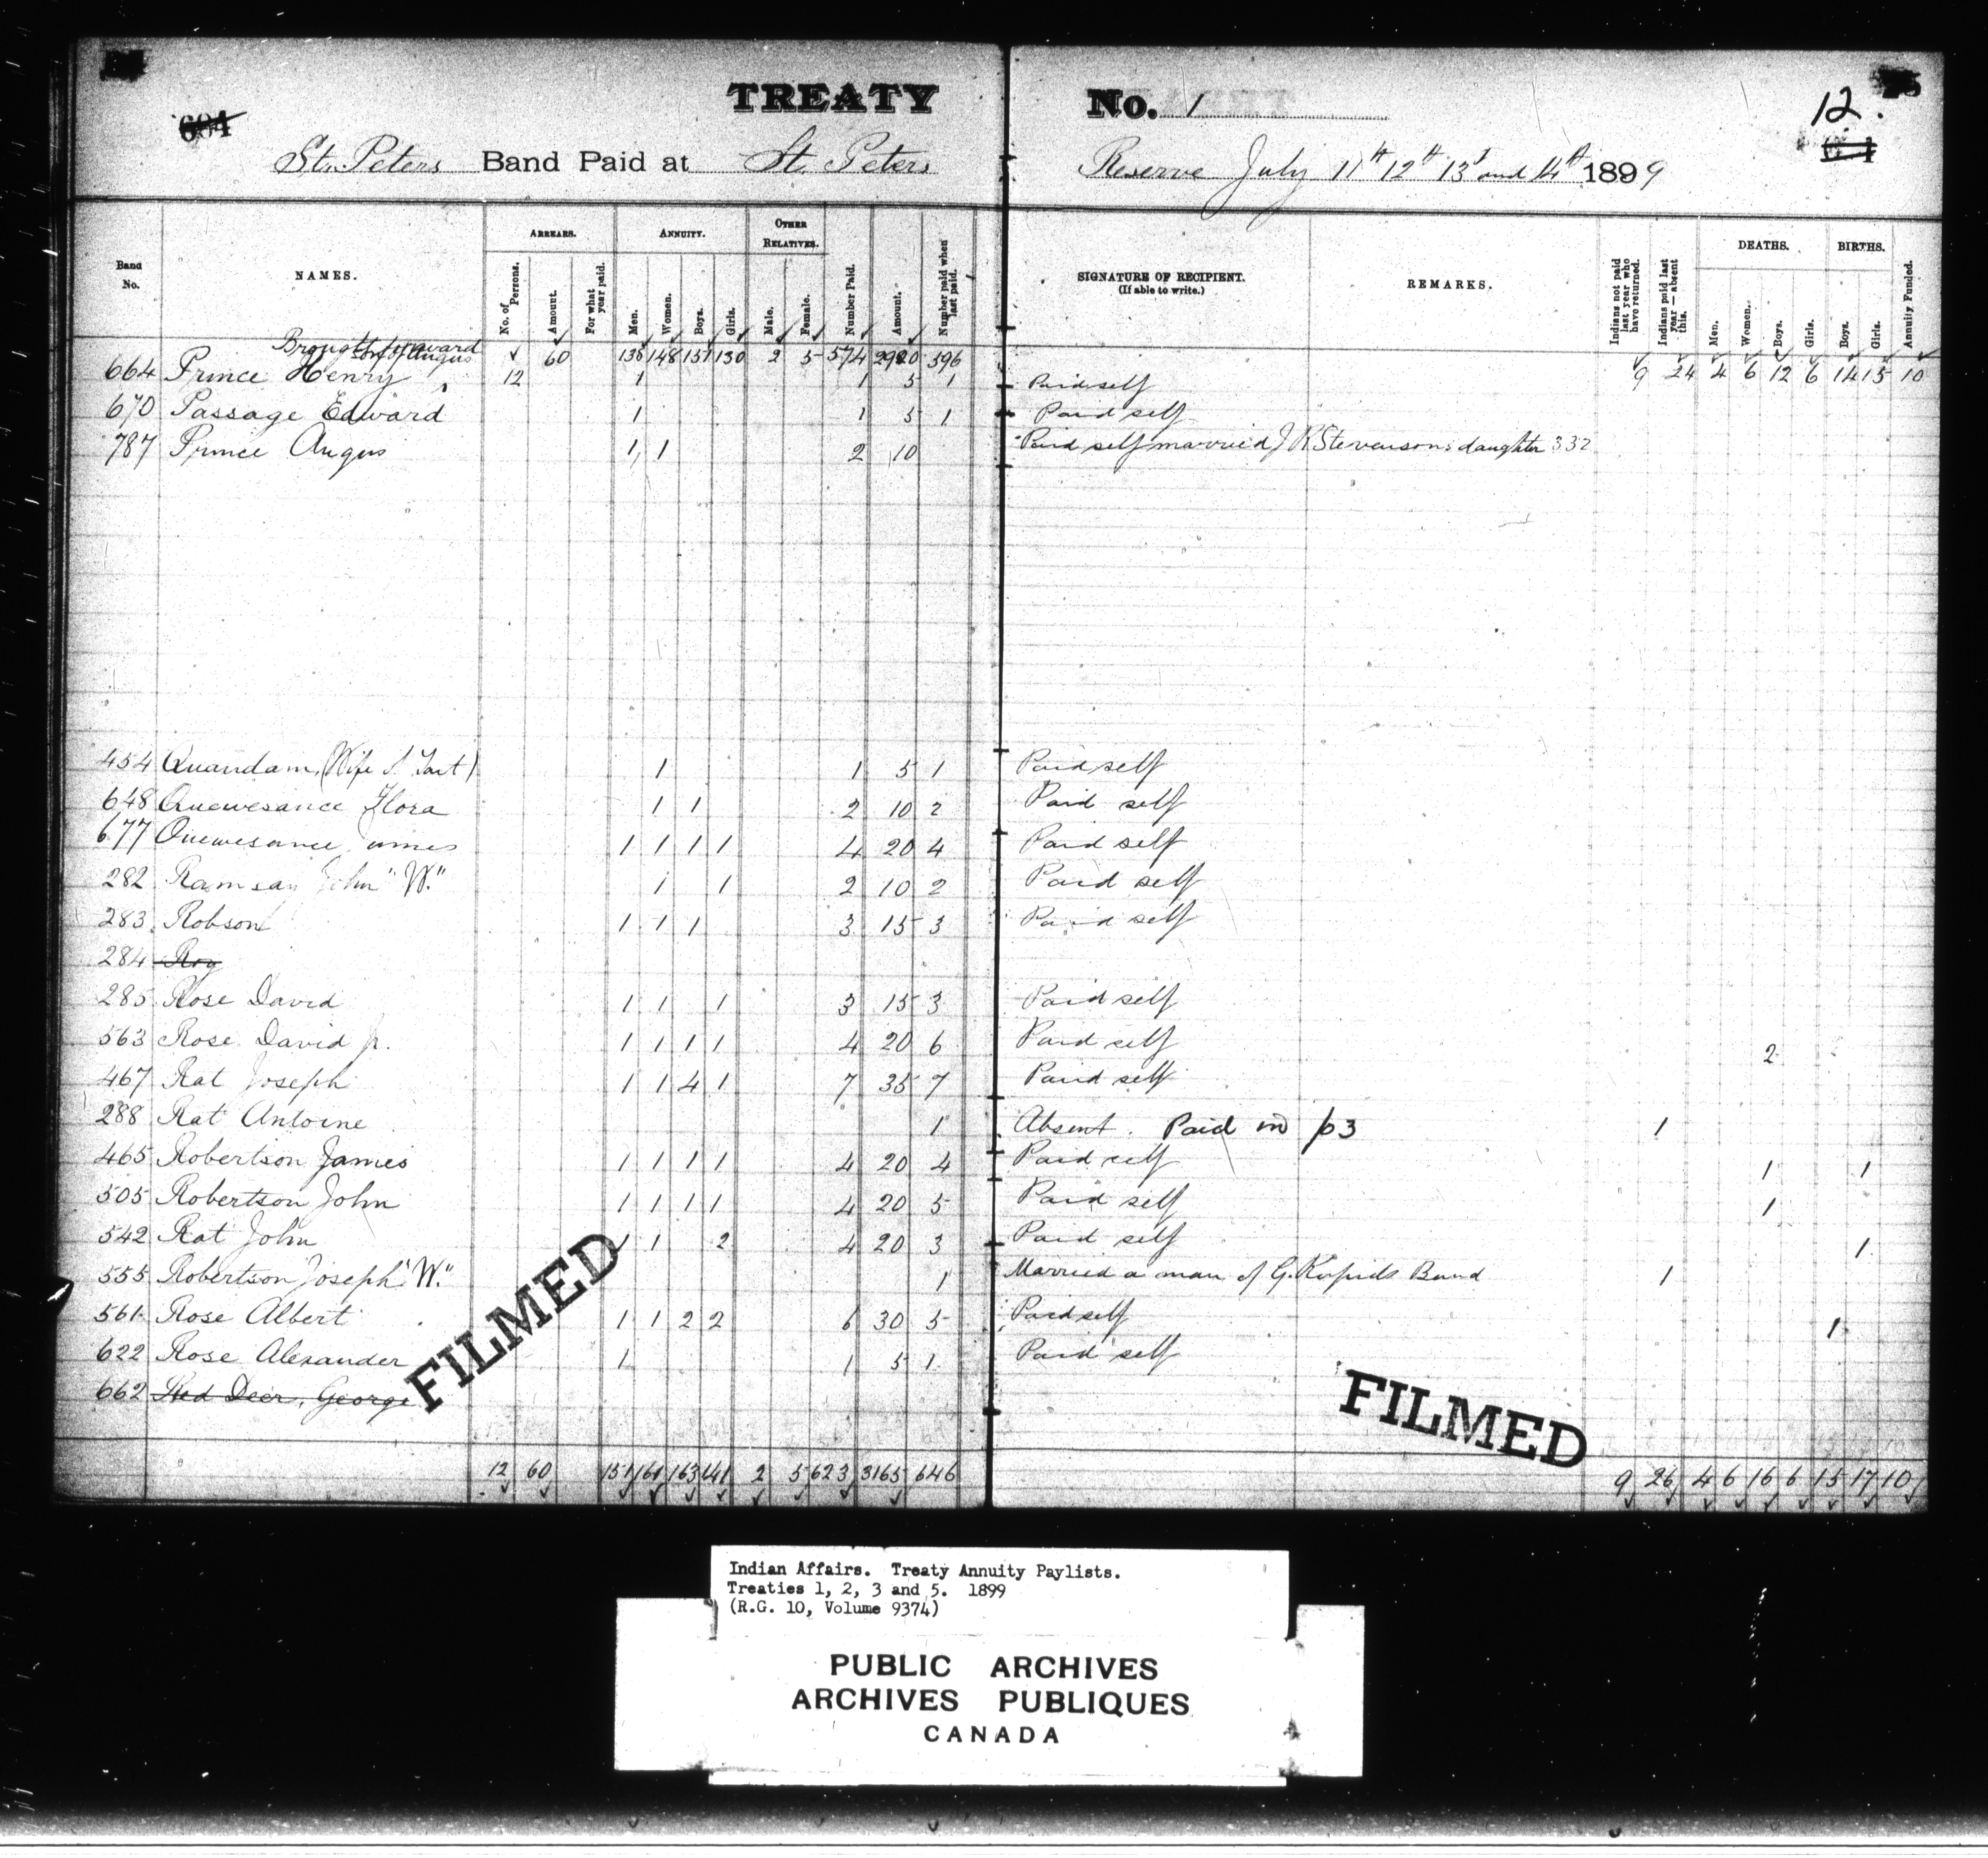 604
TREATY No. 1
12.
St. Peters Band Paid at St. Peters Reserve July 11th 12th 13th and 14th 1899
Band No. NAMES. ARREARS. No. of Persons. Amount. For what year paid. ANNUITY. Men. Women. Boys. Girls. OTHER RELATIVES. Male. Female. Number Paid. Amount. Number paid when last paid. SIGNATURE OF RECIPIENT. (If able to write.) REMARKS. Indians not paid last year who have returned. Indians paid last year — absent this. DEATHS. Men. Women. Boys. Girls. BIRTHS. Boys. Girls. Annuity Funded.
Brought forward 12 60 138 148 157 130 2 5 574 2920 596 9 24 4 6 12 6 14 15 10
664 Prince Henry 1 1 5 1 Paid self
670 Passage Edward 1 1 5 1 Paid self
787 Prince Angus 1 1 2 10 Paid self married J R Stevensons daughter 332
454 Quandam, (Wife J. Tait) 1 1 5 1 Paid self
648 Quewesance Flora 1 1 2 10 2 Paid self
677 Quewesance James 1 1 1 1 4 20 4 Paid self
282 Ramsay John "W." 1 1 2 10 2 Paid self
283 Robson 1 1 1 3 15 3 Paid self
284 Roy
285 Rose David 1 1 1 3 15 3 Paid self
563 Rose David Jr. 1 1 1 1 4 20 6 Paid self 2
467 Rat Joseph 1 1 4 1 7 35 7 Paid self
288 Rat Antoine 1 Absent. Paid in p3 1
465 Robertson James 1 1 1 1 4 20 4 Paid self 1 1
505 Robertson John 1 1 1 1 4 20 5 Paid self 1
542 Rat John 1 1 2 4 20 3 Paid self 1
555 Robertson Joseph "W." 1 Married a man of G. Rapids Band 1
561 Rose Albert 1 1 2 2 6 30 5 Paid self 1
622 Rose Alexander 1 1 5 1 Paid self
662 Red Deer, George
FILMED
FILMED
12 60 151 161 163 141 2 5 623 3165 646 9 26 4 6 16 6 15 17 10
Indian Affairs. Treaty Annuity Paylists.
Treaties 1, 2, 3 and 5. 1899
(R.G. 10, Volume 9374)
PUBLIC ARCHIVES
ARCHIVES PUBLIQUES
CANADA